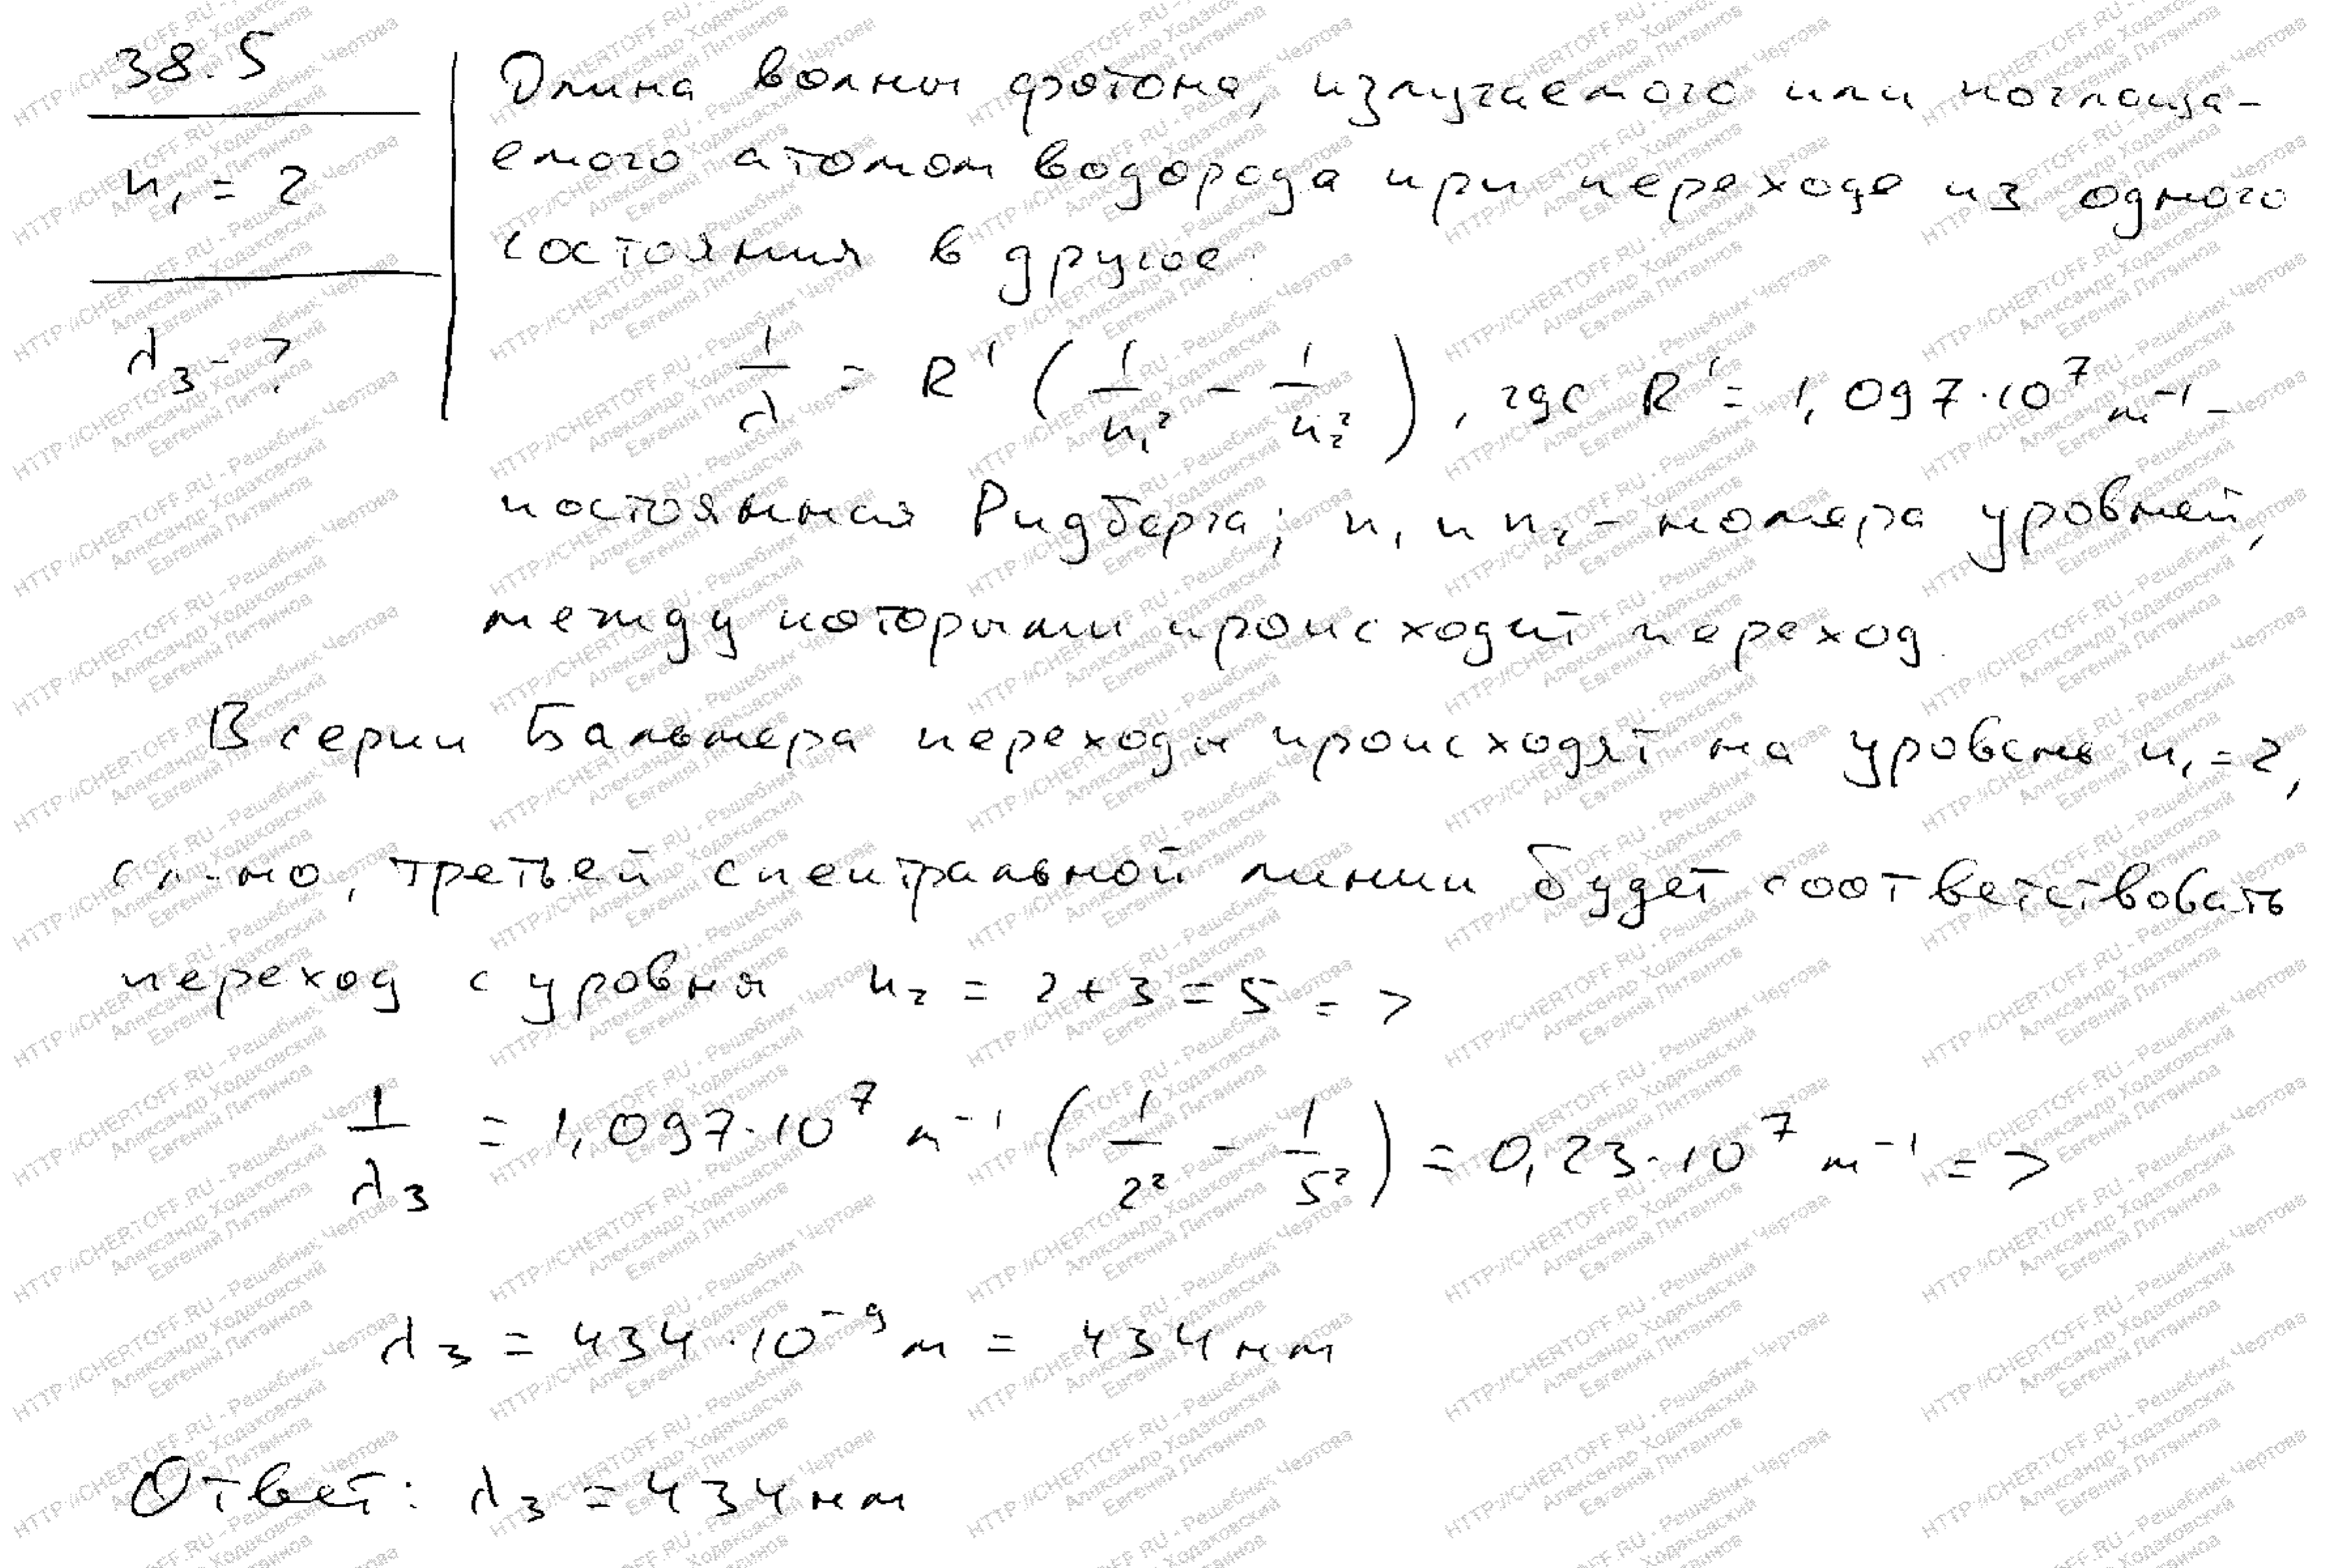 38.5
n₁ = 2
λ₃ - ?
Длина волны фотона, излучаемого или поглоща-
емого атомом водорода при переходе из одного
состояния в другое:
1/λ = R' (1/n₁² - 1/n₂²), где R' = 1,097·10⁷ м⁻¹ -
постоянная Ридберга; n₁ и n₂ - номера уровней,
между которыми происходит переход.
В серии Бальмера переходы происходят на уровень n₁ = 2,
сл-но, третьей спектральной линии будет соответствовать
переход с уровня n₂ = 2+3 = 5 =>
1/λ₃ = 1,097·10⁷ м⁻¹ (1/2² - 1/5²) = 0,23·10⁷ м⁻¹ =>
λ₃ = 434·10⁻⁹ м = 434 нм
Ответ: λ₃ = 434 нм
HTTP://CHERTOFF.RU - Решебник Чертова
Александр Ходаковский
Евгений Литвинов